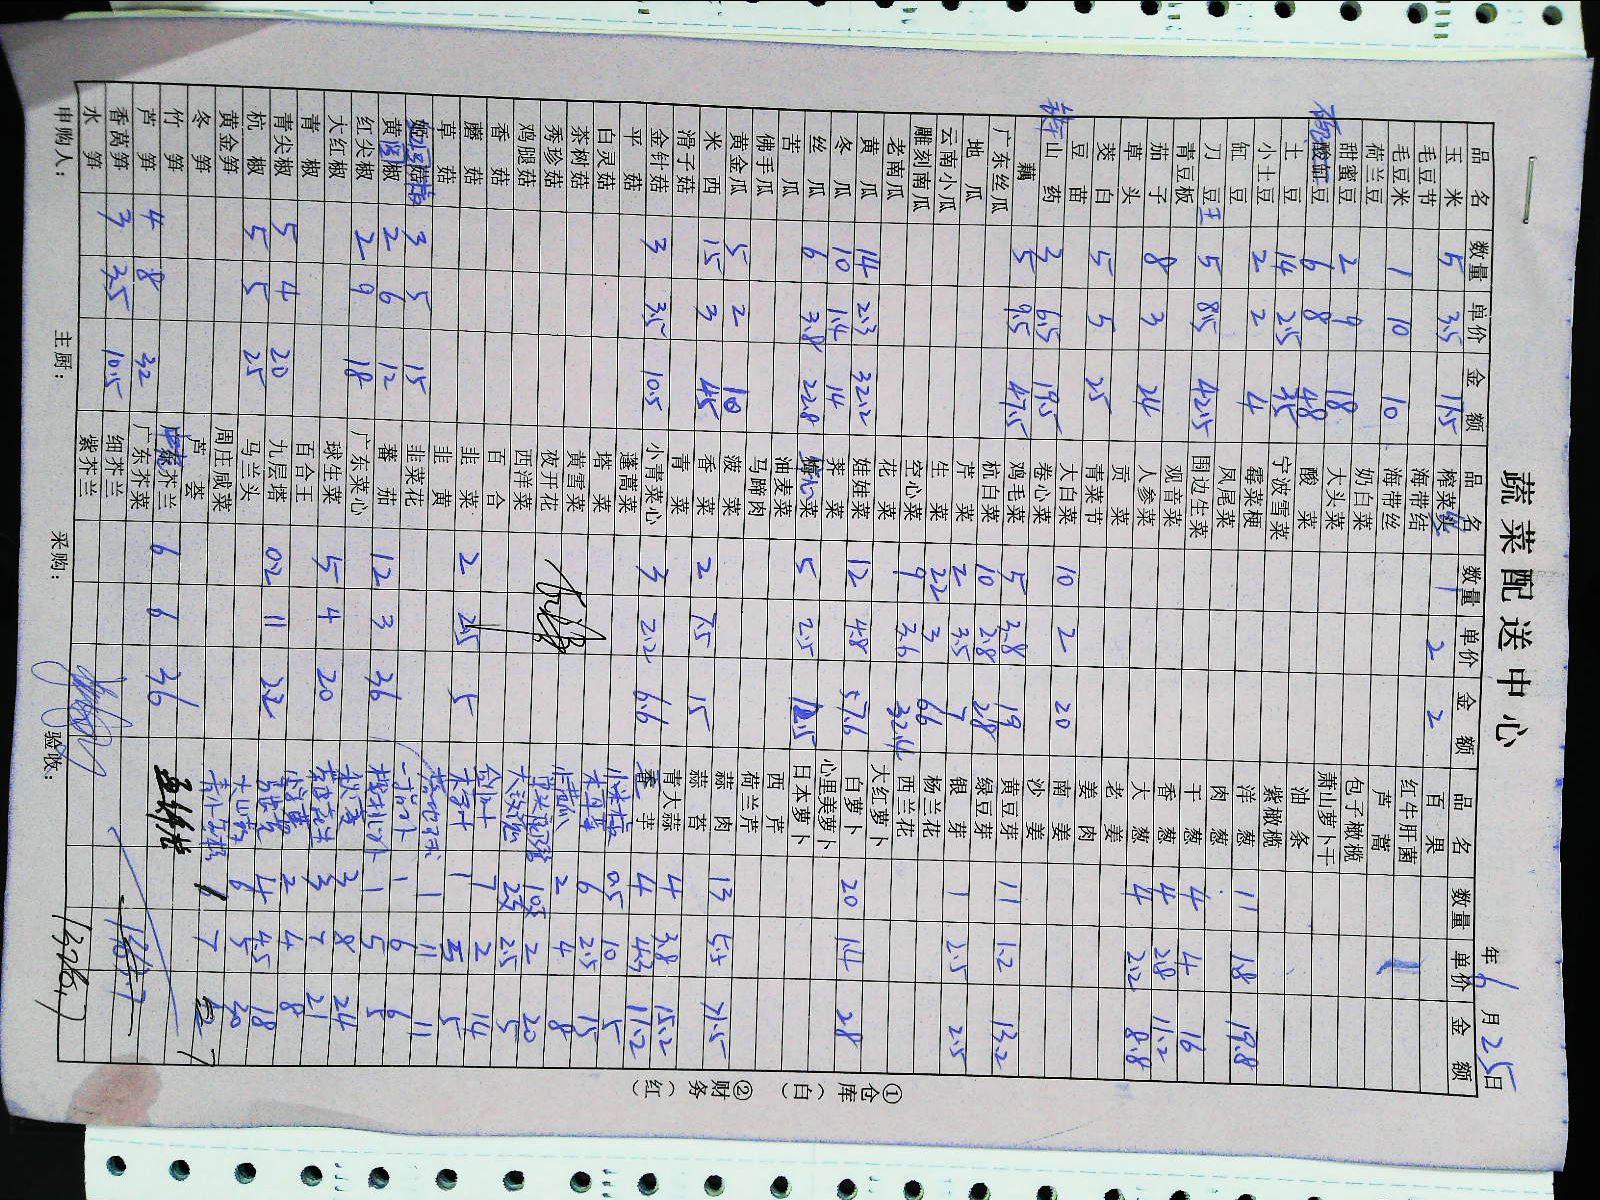 蔬菜配送中心
年6月25日
品名 数量 单价 金额 品名 数量 单价 金额 品名 数量 单价 金额
玉米 5 3.5 17.5 榨菜丝 1 2 2 百果
毛豆节 海带结 红牛肝菌
毛豆米 1 10 10 海带丝 芦蒿
荷兰豆 奶白菜 包子橄榄
甜蜜豆 2 9 18 大头菜 萧山萝卜干
酸豇豆 6 8 48 酸菜 油条
土豆 14 2.5 35 宁波雪菜 紫橄榄
小土豆 2 2 4 霉菜梗 洋葱 11 1.8 19.8
豇豆 凤尾菜 肉葱
刀豆 5 8.5 42.5 围边生菜 干葱 4 4 16
青豆板 观音菜 香葱 4 2.8 11.2
茄子 8 3 24 人参菜 大葱 4 2.2 8.8
草头 贡菜 老姜
茭白 5 5 25 青菜节 姜肉
豆苗 大白菜 10 2 20 南姜
山药 3 6.5 19.5 卷心菜 沙姜
藕 5 9.5 47.5 鸡毛菜 5 3.8 19 黄豆芽 11 1.2 13.2
广东丝瓜 杭白菜 10 2.8 28 绿豆芽
地瓜 芹菜 2 3.5 7 银芽 1 2.5 2.5
云南小瓜 生菜 22 3 66 杨兰花
雕刻南瓜 空心菜 9 3.6 32.4 西兰花
老南瓜 花菜 大红萝卜
黄瓜 14 2.3 32.2 娃娃菜 12 4.8 57.6 白萝卜 20 1.4 28
冬瓜 10 1.4 14 荠菜 心里美萝卜
丝瓜 6 3.8 22.8 菜 5 2.5 12.5 日本萝卜
苦瓜 油麦菜 西芹
佛手瓜 马蹄肉 荷兰芹
黄金瓜 5 2 10 菠菜 蒜肉 13 5.5 71.5
米西 15 3 45 香菜 2 7.5 15 蒜苔
滑子菇 青菜 青大蒜 4 3.8 15.2
金针菇 3 3.5 10.5 小青菜心 3 2.2 6.6 香芋 4 4.3 17.2
平菇 蓬蒿菜 0.5 10 5
白灵菇 塔菜 6 2.5 15
茶树菇 黄雪菜 2 4 8
秀珍菇 夜开花 10.5 2 20
鸡腿菇 西洋菜 2.5 5
香菇 百合 7 2 14
蘑菇 韭菜 2 2.5 5 1 5 5
草菇 韭黄 1 11 11
姬菇 3 5 15 韭菜花 1 6 6
黄椒 2 6 12 蕃茄 12 3 36 1 5 5
红尖椒 2 9 18 广东菜心 3 8 24
大红椒 球生菜 5 4 20 3 7 21
青椒 百合王 2 4 8
青尖椒 5 4 20 九层塔 0.2 11 2.2 4 4.5 18
杭椒 5 5 25 马兰头 大山药 5 20
黄金笋 周庄咸菜 7 7
冬笋 芦荟
竹笋 芥兰 6 6 36
芦笋 4 8 32 广东芥菜
香莴笋 3 3.5 10.5 细芥兰
水笋 紫芥兰 1376.7
申购人： 主厨： 采购： 验收：
①仓库（白） ②财务（红）